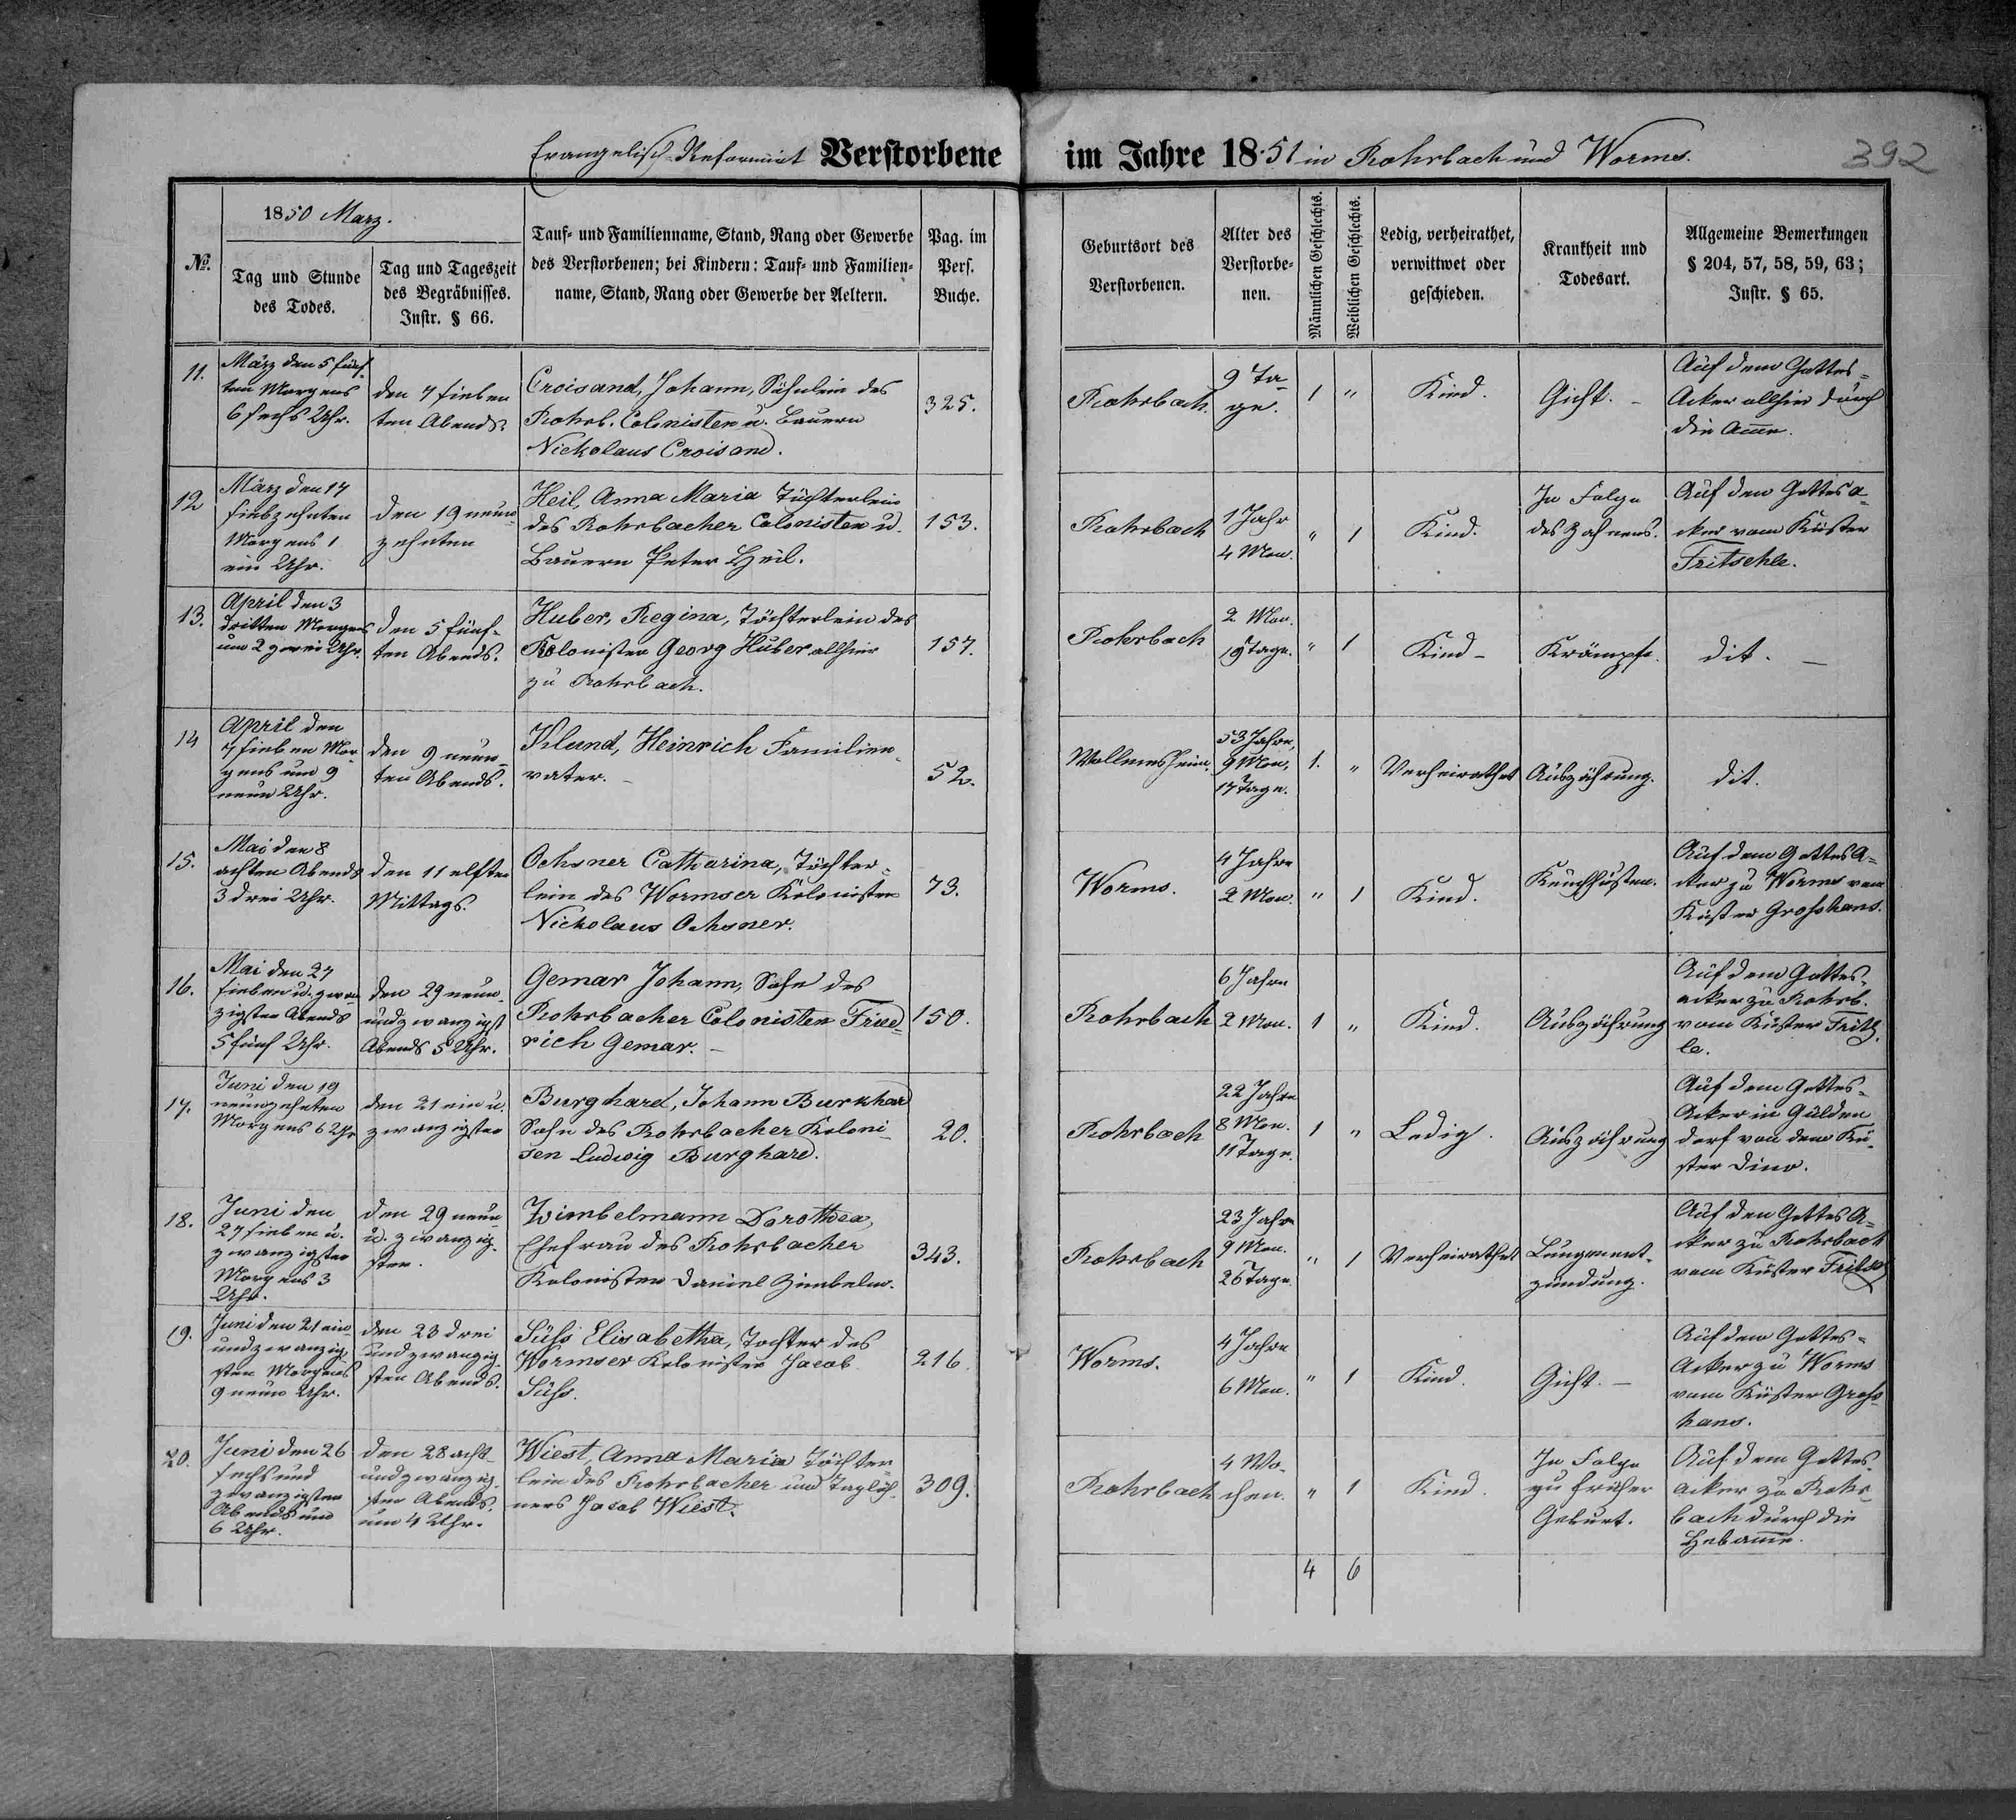 Evangelisch-Reformirt Verstorbene im Jahre 18·51 in Rohrbach und Worms.
392
No.
1850 Marz.
Tag und Stunde
des Todes.
Tag und Tageszeit
des Begräbnisses.
Instr. § 66.
Tauf- und Familienname, Stand, Rang oder Gewerbe
des Verstorbenen; bei Kindern: Tauf- und Familien-
name, Stand, Rang oder Gewerbe der Aeltern.
Pag. im
Pers.
Buche.
Geburtsort des
Verstorbenen.
Alter des
Verstorbe-
nen.
Männlichen Geschlechts.
Weiblichen Geschlechts.
Ledig, verheirathet,
verwittwet oder
geschieden.
Krankheit und
Todesart.
Allgemeine Bemerkungen
§ 204, 57, 58, 59, 63;
Instr. § 65.
11.
März den 5 fünf-
ten Morgens
6 sechs Uhr.
den 7 sieben
ten Abends.
Croisand, Johann, Söhnlein des
Rohrb. Colonisten u. Bauern
Nickolaus Croisand.
325.
Rohrbach.
9 Ta-
ge.
1 "
Kind.
Gicht. -
Auf dem Gottes=
Acker allhier durch
die Amme.
12
März den 17
siebzehnten
Morgens 1
ein Uhr.
den 19 neun-
zehnten
Heil, Anna Maria Töchterlein
des Rohrbacher Colonisten u.
Bauern Peter Heil.
153.
Rohrbach
1 Jahr
4 Mon.
" 1
Kind.
In Folge
des Zahnens.
Auf den Gottesa-
cker vom Küster
Fritschle.
13.
April den 3
dritten Morgens
um 2 zwei Uhr.
den 5 fünf-
ten Abends.
Huber, Regina, Töchterlein des
Kolonisten Georg Huber allhier
zu Rohrbach.
157.
Rohrbach
2 Mon.
19 Tage.
" 1
Kind -
Krämpfe.
dit. -
14
April den
7 sieben Mor-
gens um 9
neun Uhr.
den 9 neun-
ten Abends.
Klund, Heinrich Familien-
vater. -
52.
Wollmesheim.
53 Jahre,
9 Mon,
17 Tage.
1. "
Verheirathet
Auszehrung.
dit.
15.
Mai den 8
achten Abends
3 drei Uhr.
den 11 elften
Mittags.
Ochsner Catharina, Töchter=
lein des Wormser Kolonisten
Nickolaus Ochsner.
73.
Worms.
4 Jahre
2 Mon.
" 1
Kind.
Keuchhusten.
Auf dem GottesA=
cker zu Worms vom
Küster Grosshans.
16.
Mai den 27
sieben u. zwan
zigsten Abends
5 fünf Uhr.
den 29 neun-
undzwanzigst
Abends 5 Uhr.
Gemar Johann, Sohn des
Rohrbacher Colonisten Fried-
rich Gemar. -
150.
Rohrbach
6 Jahre
2 Mon.
1 "
Kind.
Auszehrung
Auf dem Gottes-
acker zu Rohrb.
vom Küster Fritz
le.
17.
Juni den 19
neunzehnten
Morgens 6 Uhr
den 21 ein u.
zwanzigsten
Burghard, Johann Burkhar
Sohn des Rohrbacher Koloni-
sen Ludwig Burghard.
20.
Rohrbach
22 Jahre
8 Mon.
11 Tage.
1 "
Ledig.
Auszehrung
Auf dem Gottes-
Acker in Gülden
dorf von dem Kü-
ster
18.
Juni den
27 sieben u.
zwanzigsten
Morgens 3
Uhr.
den 29 neun
u. zwanzig-
sten.
Zimbelmann Dorothea,
Ehefrau des Rohrbacher
Kolonisten Daniel Zimbelm.
343.
Rohrbach
23 Jahre
9 Mon.
26 Tage.
" 1
Verheirathet
Lungenent-
zündung.
Auf den GottesA=
cker zu Rohrbach
vom Küster
19.
Juni den 21 ein-
undzwanzig-
sten Morgens
9 neun Uhr.
den 23 drei
undzwanzig-
sten Abends.
Süss Elisabetha, Tochter des
Wormser Kolonisten Jacob
Süss.
216.
Worms.
4 Jahre
6 Mon.
" 1
Kind.
Gicht. -
Auf dem Gottes=
Acker zu Worms
vom Küster Gross-
hans.
20.
Juni den 26
sechsund
zwanzigsten
Abends um
6 Uhr.
den 28 acht-
undzwanzig-
sten Abends
um 4 Uhr.
Wiest, Anna Maria Töchter
lein des Rohrbacher und Taglöh-
ners Jacob Wiest.
309.
Rohrbach
4 Wo-
chen.
" 1
Kind.
In Folge
zu früher
Geburt.
Auf dem Gottes-
acker zu Rohr-
bach durch die
Hebamme.
4 6